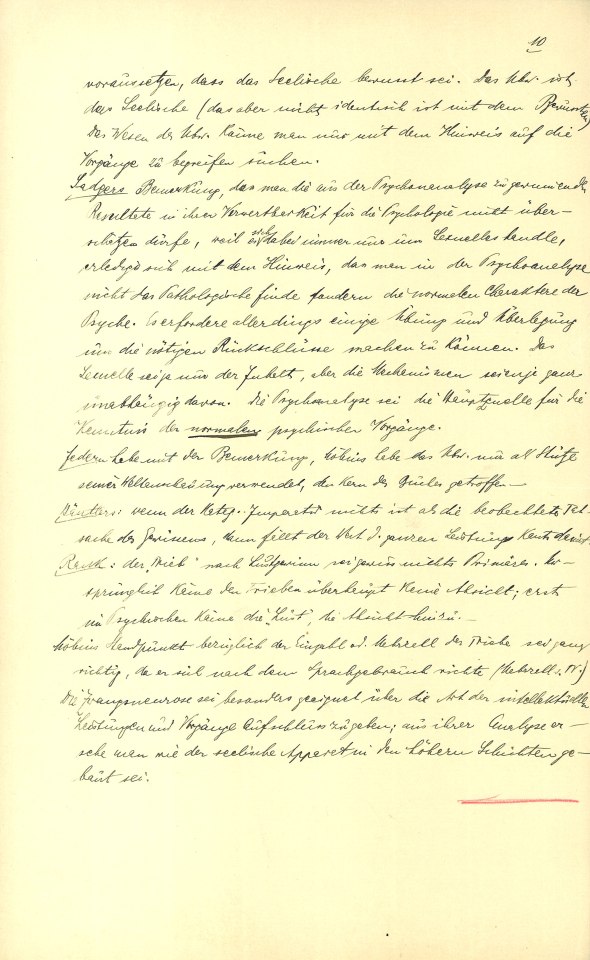 10
voraussetzen, dass das Seelische bewusst sei. Das Ubw. ist
das Seelische (das aber nicht identisch ist mit dem Bewussten)
Das Wesen des Ubw. könne man nur mit dem Hinweis auf die
Vorgänge zu begreifen suchen.
Sadgers Bemerkung, das man die aus der Psychoanalyse zu gewinnenden
Resultate in ihrer Verwertbarkeit für die Psychologie nicht über-
schätzen dürfe, weil es sich dabei immer nur um Sexuelles handle,
erledige sich mit dem Hinweis, das man in der Psychoanalyse
nicht das Pathologische finde sondern die normalen Charaktere der
Psyche. Es erfordere allerdings einige Übung und Überlegung
um die nötigen Rückschlüsse machen zu können. Das
Sexuelle sei ja nur der Inhalt, aber die Mechanismen seien ja ganz
unabhängig davon. Die Psychoanalyse sei die Hauptquelle für die
Kenntnis der normalen psychischen Vorgänge.
Federn habe mit der Bemerkung, Möbius habe das Ubw. nur als Stütze
seiner Weltanschauung verwendet, den Kern des Buches getroffen –
Häutler: wenn der kateg. Imperativ nichts ist als die beobachtete Tat-
sache des Gewissens, dann fällt der Wert d. ganzen Leistung Kants damit
Rank: der „Trieb“ nach Lustgewinn sei gewiss nichts Primäres. Ur-
sprünglich käme den Trieben überhaupt keine Absicht; erst
im Psychischen käme die „Lust“, die Absicht hinzu. –
Möbius Standpunkt bezüglich der Einzahl od. Mehrzahl der Triebe sei ganz
richtig, da er sich nach dem Sprachgebrauch richte
Die Zwangsneurose sei besonders geeignet über die Art der intellektuellen
Leistungen und Vorgänge Aufschluss zu geben; aus ihrer Analyse er-
sehe man wie der seelische Apparat in den höhern Schichten ge-
baut sei.